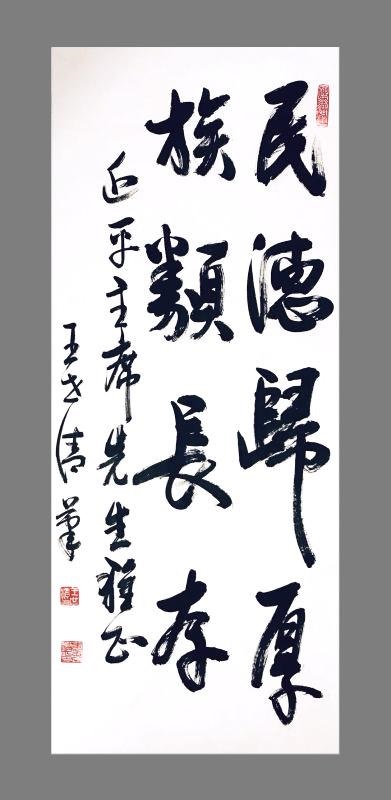 民德歸厚
族類長存
近平主席先生雅正
王世清筆